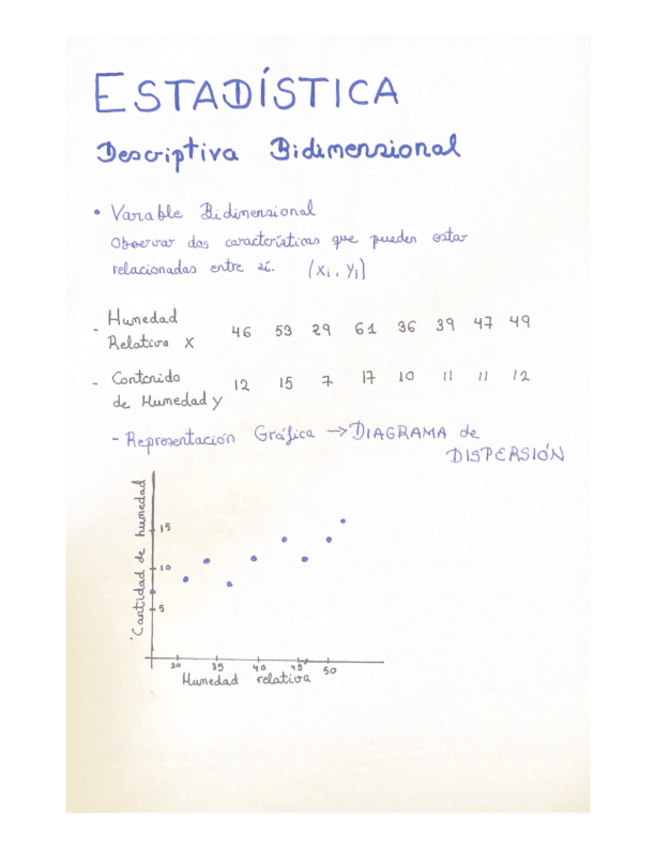 ESTADÍSTICA
Descriptiva Bidimensional
• Variable Bidimensional
Observar dos características que pueden estar
relacionadas entre sí. (xi, yi)
- Humedad
Relativa X 46 53 29 61 36 39 47 49
- Contenido
de Humedad y 12 15 7 17 10 11 11 12
- Representación Gráfica → DIAGRAMA de
DISPERSIÓN
Cantidad de humedad
15
10
5
30 35 40 45 50
Humedad relativa